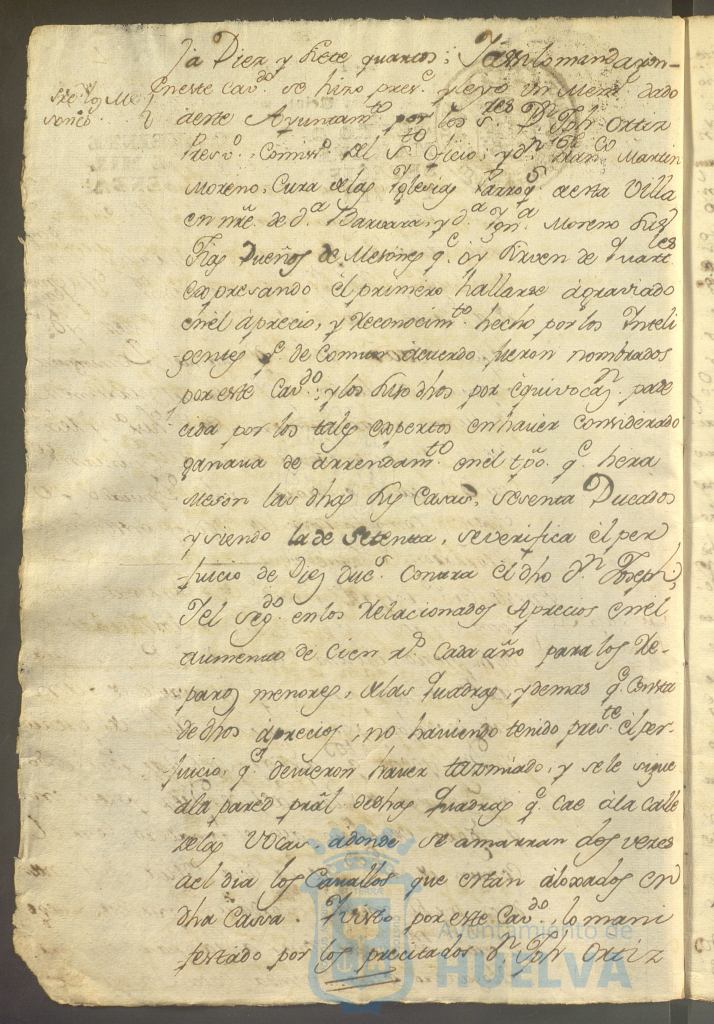 ta Diez y siete quartos; Y assi lo mandaron
Sre. los Me
sones.
En este Cavdo. se hizo prest. y leyó un Meml. dado
a este Ayuntamto. por los Sres. Dn. Joh Ortiz
Presvo. Comisso. del Sto. Oficio, y Dn. Franco. Martin
Moreno, Cura de las Yglesias Parroqs. de esta Villa
en nre. de Da. Barvara, y Da. Ygna. Moreno sus
tias Dueños de Mesones qe. oy sirven de quartes
expresando el primero hallarse agraviado
en el aprecio, y reconocimto. hecho por los Inteli
gentes qe. de comun acuerdo fueron nombrados
por este Cavdo.; y los susodhos por equivocazn. pade
cida por los tales expertos en haver considerado
ganava de arrendamto. en el tpo. qe. hera
Meson las dhas sus Casas, sesenta Ducados
y siendo la de setenta, se verifica el per
juicio de Diez Ducs. contra el dho Dn. Joseph;
Y el segdo. en los relacionados aprecios en el
aumento de cien rs. cada año para los re-
paros menores, de las quadras, y demas qe. consta
de dhos aprecios, no haviendo tenido preste. el per-
juicio qe. devieron haver tazmiado, y se le sigue
a la pared pral de dhas quadras qe. cae a la calle
de las Vocas adonde se amarran dos veces
al dia los Cavallos que estan aloxados en
dha Cassa. Y visto por este Cavdo. lo mani
festado por los precitados Dn. Joh Ortiz
Ayuntamiento de
HUELVA